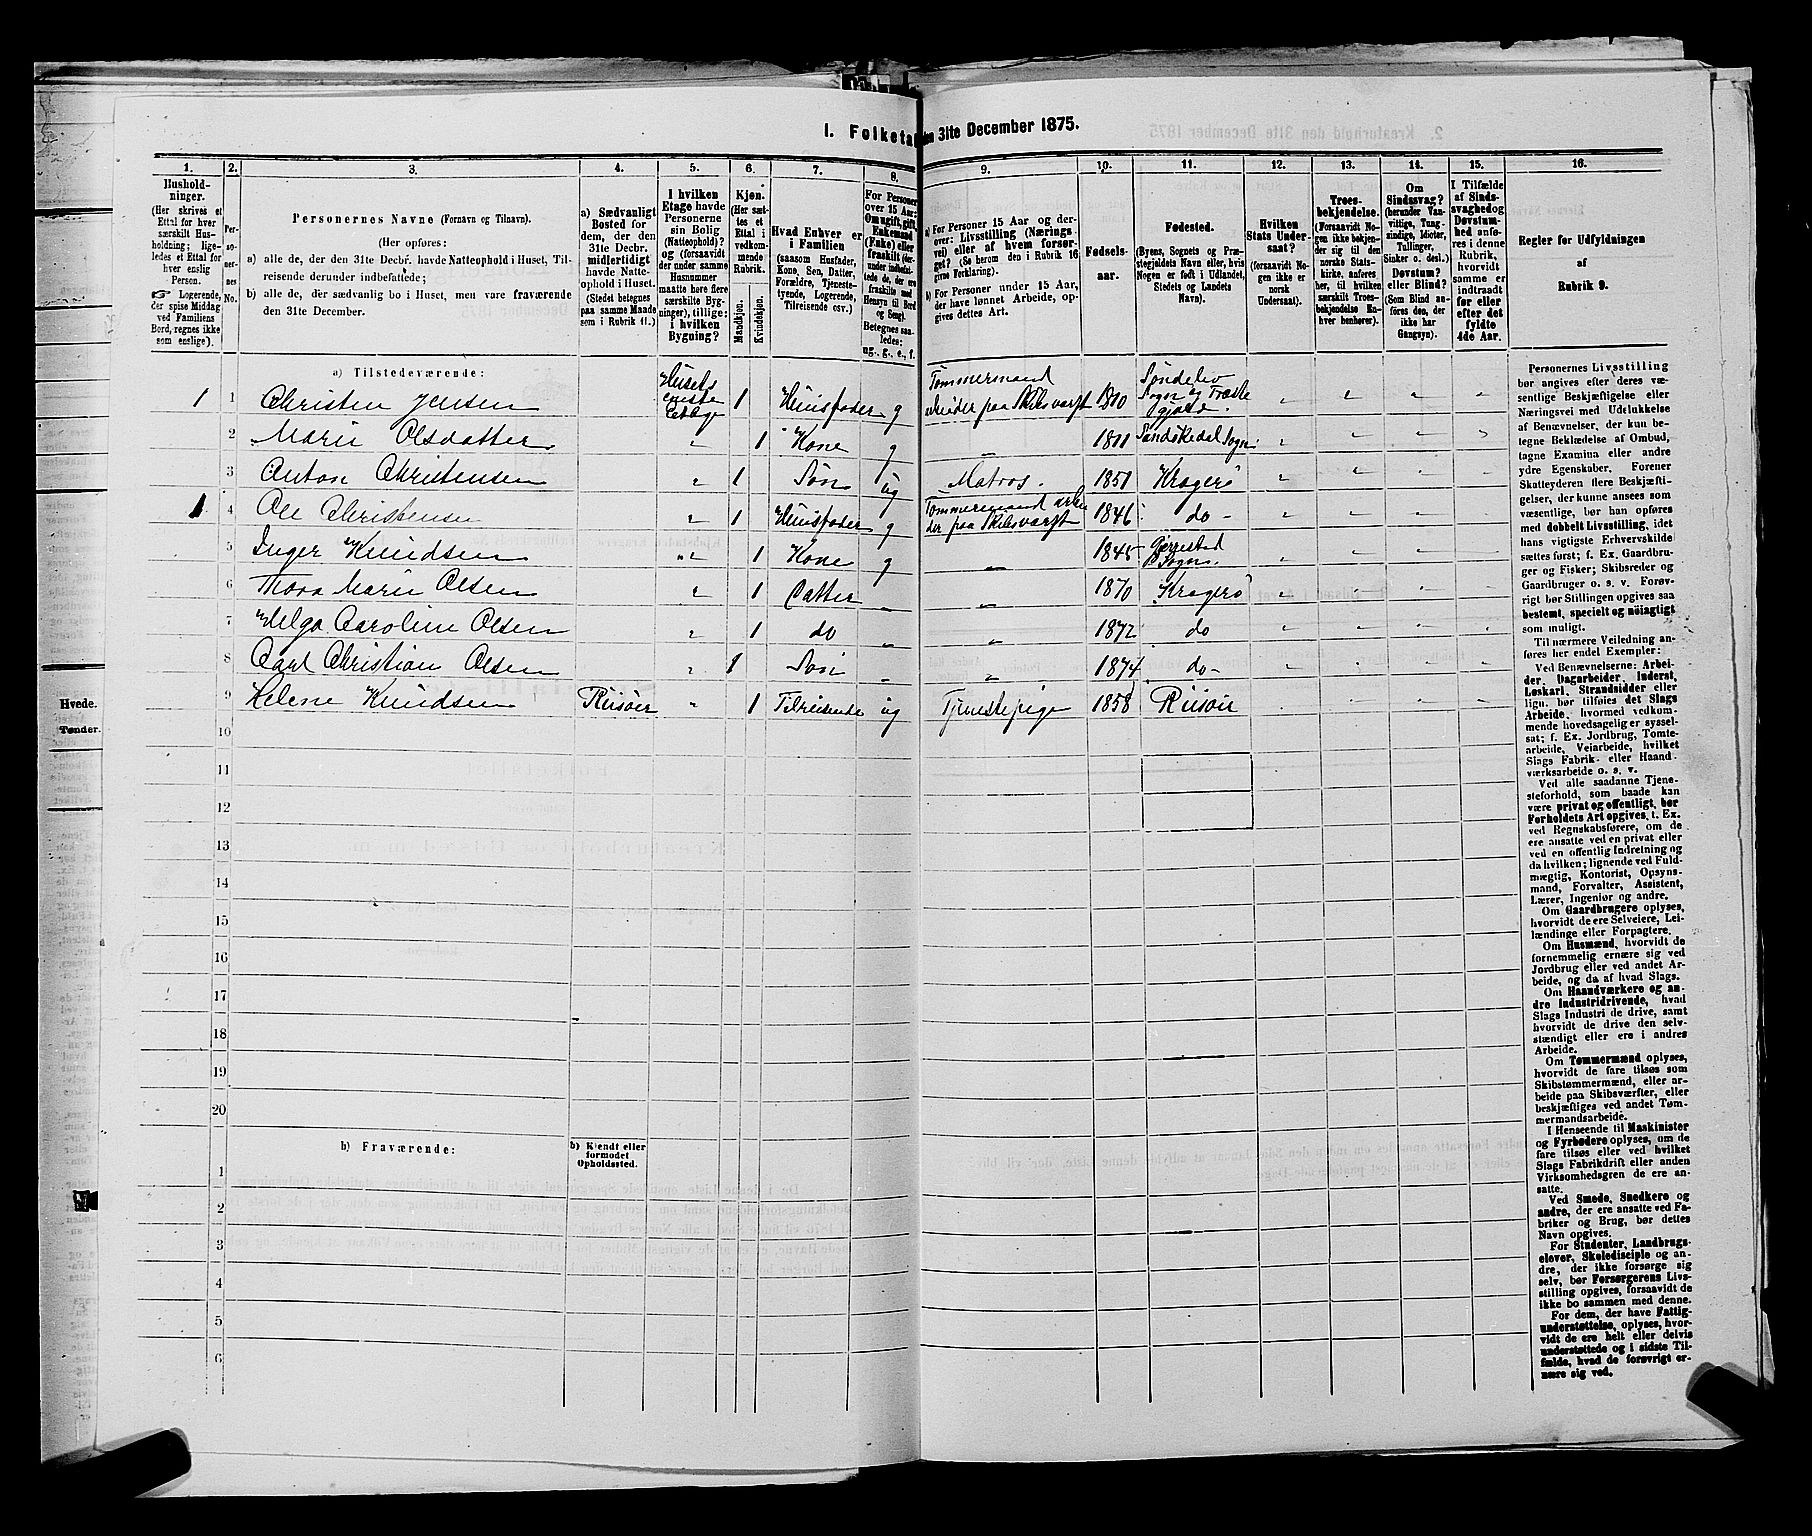 1. Folketa
en 31te December 1875.
1. 2. 3. 4. 5. 6. 7. 8. 9. 10. 11. 12. 13. 14. 15. 16.
Hushold-
ninger.
(Her skrives et
Ettal for hver
særskilt Hus-
holdning; lige-
ledes et Ettal for
hver enslig
Person.
☞ Logerende,
der spise Middag
ved Familiens
Bord, regnes ikke
som enslige).
Per-
so-
ner-
nes
No.
Personernes Navne (Fornavn og Tilnavn).
(Her opføres:
a) alle de, der den 31te Decbr. havde Natteophold i Huset, Til-
reisende derunder indbefattede;
b) alle de, der sædvanlig bo i Huset, men vare fraværende
den 31te December.
a) Sædvanligt
Bosted for
dem, der den
31te Decbr.
midlertidigt
havde Natte-
ophold i Huset.
(Stedet betegnes
paa samme Maade
som i Rubrik 11.)
I hvilken
Etage havde
Personerne
sin Bolig
(Natteophold)?
og (forsaavidt
der under samme
Husnummer
maatte høre flere
særskilte Byg-
ninger), tillige:
i hvilken
Bygning?
Kjøn.
(Her sæt-
tes et
Ettal i
vedkom-
mende
Rubrik.
Mandkjøn.
Kvindekjøn.
Hvad Enhver er
i Familien
(saasom Husfader,
Kone, Søn, Datter,
Forældre, Tjeneste-
tyende, Logerende,
Tilreisende osv.)
For Personer
over 15 Aar:
Om ugift, gift,
Enkemand
(Enke) eller
fraskilt
Hensyn til Bord
og Seng).
Betegnes saa-
ledes:
ug., g., e., f.
a) For Personer 15 Aar og der-
over: Livsstilling (Nærings-
vei) eller af hvem forsør-
get? (Se herom den i Rubrik 16
givne Forklaring).
b) For Personer under 15 Aar,
der have lønnet Arbeide, op-
gives dettes Art.
Fødsels-
aar.
Fødested.
(Byens, Sognets og Præ-
stegjeldets Navn eller, hvis
Nogen er født i Udlandet,
Stedets og Landets
Navn).
Hvilken
Stats Under-
saat?
(forsaavidt No-
gen ikke er
norsk
Undersaat).
Troes-
bekjendelse.
(Forsaavidt No-
gen ikke bekjen-
der sig til den
norske Stats-
kirke, anføres
her, til hvilken
særskilt Troes-
bekjendelse En-
hver henhører).
Om
Sindssvag?
(herunder Van-
vittige, Tung-
sindige, Idioter,
Tullinger,
Sinker o. desl.)
Døvstum?
eller Blind?
(Som Blind an-
føres den, der
ikke har
Gangsyn).
I Tilfælde
af Sinds-
svaghed og
Døvstum-
hed anfø-
res i denne
Rubrik,
hvorvidt
samme er
indtraadt
før eller
efter det
fyldte
4de Aar.
Regler for Udfyldningen
af
Rubrik 9.
a) Tilstedeværende:
1 1 Christen Jensen Husets første Etage 1 Huusfader g Tømmermand arbeider paa Skibsværft 1810 Søndelev Sogn
2 Marie Olsdatter " 1 Kone g " 1811 Sandskedal Sogn
3 Anton Christensen " 1 Søn ug Matros. 1851 Kragerø
1 4 Ole Christensen " 1 Huusfader g Tømmermand arbeider paa Skibsværft 1846 do-
5 Inger Knudsen " 1 Kone g " 1845 Gjerrestad Sogn.
6 Thora Marie Olsen " 1 Datter " " 1870 Kragerø
7 Helga Caroline Olsen " 1 do " " 1872 do
8 Carl Christian Olsen " 1 Søn " " 1874 do-
9 Helene Knudsen Riisøer " 1 Tilreisende ug Tjenestepige 1858 Riisøer
10
11
12
13
14
15
16
17
18
19
20
b) Fraværende:
b) Kjendt eller
formodet
Opholdssted.
1
2
3
4
5
6
Personernes Livsstilling
bør angives efter deres væ-
sentlige Beskjæftigelse eller
Næringsvei med Udelukkelse
af Benævnelser, der kun be-
tegne Beklædelse af Ombud,
tagne Examina eller andre
ydre Egenskaber. Forener
Skatteyderen flere Beskjæfti-
gelser, der kunne ansees som
væsentlige, bør han opføres
med dobbelt Livsstilling, idet
hans vigtigste Erhvervskilde
sættes først; f. Ex. Gaardbru-
ger og Fisker; Skibsreder og
Gaardbruger o. s. v. Forøv-
rigt bør Stillingen opgives saa
bestemt, specielt og nøiagtigt
som muligt.
Til nærmere Veiledning an-
føres her endel Exempler:
Ved Benævnelserne: Arbei-
der, Dagarbeider, Inderst,
Løskarl, Strandsidder eller
lign. bør tilføies det Slags
Arbeide, hvormed vedkom-
mende hovedsagelig er syssel-
sat; f. Ex. Jordbrug, Tomte-
arbeide, Veiarbeide, hvilket
Slags Fabrik- eller Haand-
værksarbeide o. s. v.
Ved alle saadanne Tjene-
steforhold, som baade kan
være privat og offentligt, bør
Forholdets Art opgives, t. Ex.
ved Regnskabsførere, om de
ere ansatte ved en privat eller
ved en offentlig Indretning og
da hvilken; lignende ved Fuld-
mægtig, Kontorist, Opsyns-
mand, Forvalter, Assistent,
Lærer, Ingeniør og andre.
Om Gaardbrugere oplyses,
hvorvidt de ere Selveiere, Lei-
lændinge eller Forpagtere.
Om Husmænd, hvorvidt de
fornemmelig ernære sig ved
Jordbrug eller ved andet Ar-
beide, og da af hvad Slags.
Om Haandværkere og an-
dre Industridrivende, hvad
Slags Industri de drive, samt
hvorvidt de drive den selv-
stændigt eller ere i andres
Arbeide.
Om Tømmermænd oplyses,
hvorvidt de fare tilsøs som
Skibstømmermænd, eller ar-
beide paa Skibsværfter, eller
beskjæftiges ved andet Tøm-
mermandsarbeide.
I Henseende til Maskinister
og Fyrbødere oplyses, om de
fare tilsøs eller ved hvilket
Slags Fabrikdrift eller anden
Virksomhedsgren de ere an-
satte.
Ved Smede, Snedkere og
andre, der ere ansatte ved Fa-
briker og Brug, bør dettes
Navn opgives.
For Studenter, Landbrugs-
elever, Skoledisciple og an-
dre, der ikke forsørge sig
selv, bør Forsørgerens Livs-
stilling opgives, forsaavidt de
ikke bo sammen med denne.
For dem, der have Fattig-
understøttelse, oplyses, hvor-
vidt de ere helt eller delvis
understøttede og i sidste Til-
fælde, hvad de forøvrigt er-
nære sig ved.
Hvede.
Tønder.